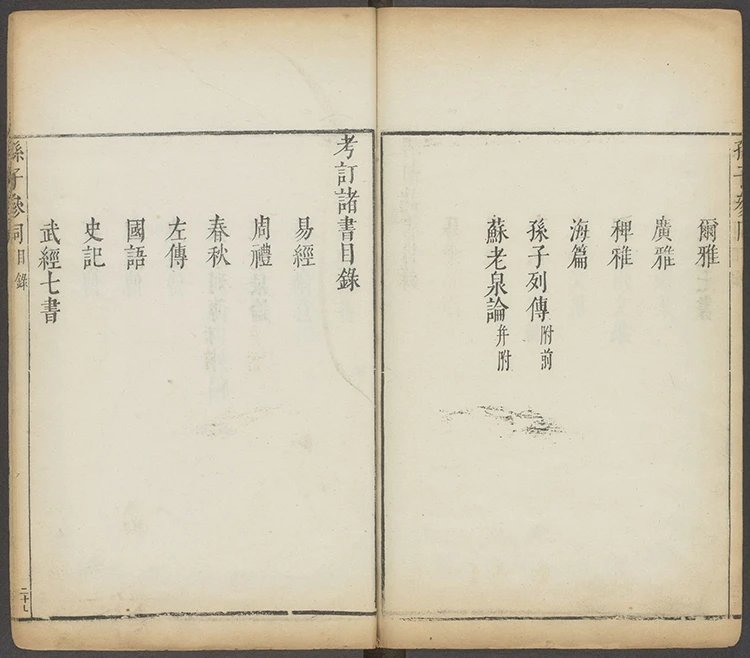 爾雅
廣雅
稗雅
海篇
孫子列傳附前
蘇老泉論并附
考訂諸書目錄
易經
周禮
春秋
左傳
國語
史記
武經七書
孫子參同目錄